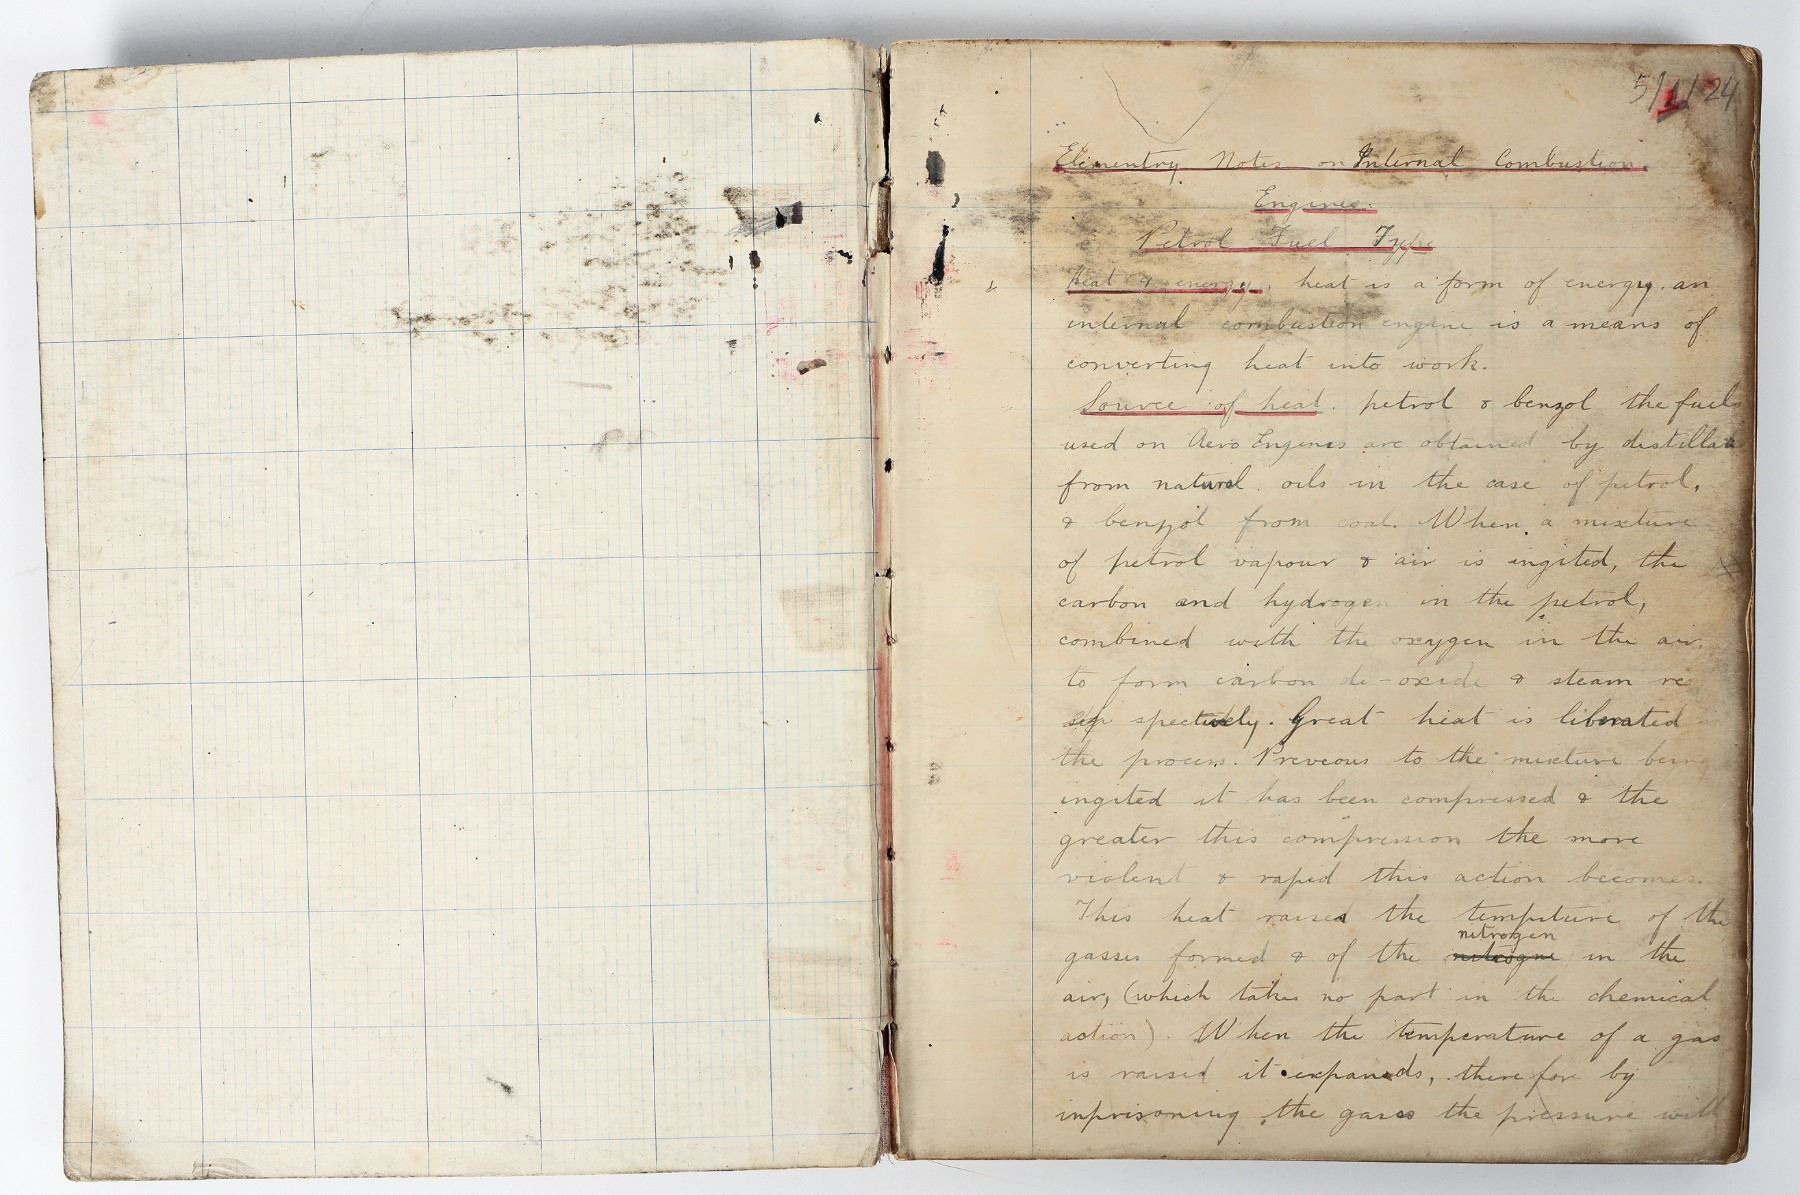 5/1/24
Elementry Notes on Internal Combustion.
Engines.
Petrol Fuel Type
Heat & energy, heat is a form of energy. an
internal combustion engine is a means of
converting heat into work.
Source of heat. petrol & benzol the fuels
used on Aero Engines are obtained by distillation
from natural oils in the case of petrol,
& benzol from coal. When a mixture
of petrol vapour & air is ingited, the
carbon and hydrogen in the petrol,
combined with the oxygen in the air,
to form carbon di-oxide & steam re
spectively. Great heat is liberated
the process. Preveous to the mixture being
ingited it has been compressed & the
greater this compression the more
violent & rapid this action becomes.
This heat raised the tempiture of the
nitrogen
gasses formed & of the nitrogne in the
air, (which takes no part in the chemical
action). When the temperature of a gas
is raised it expands, there fore by
inprisoning the gases the pressure will